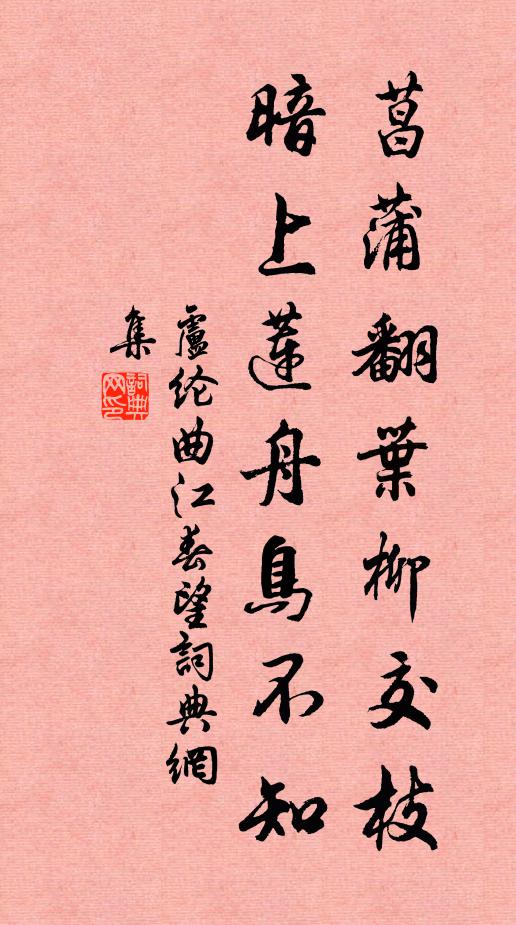 菖蒲翻葉柳交枝
暗上蓮舟鳥不知
盧纶曲江春望詞典網
集
詞典
网印